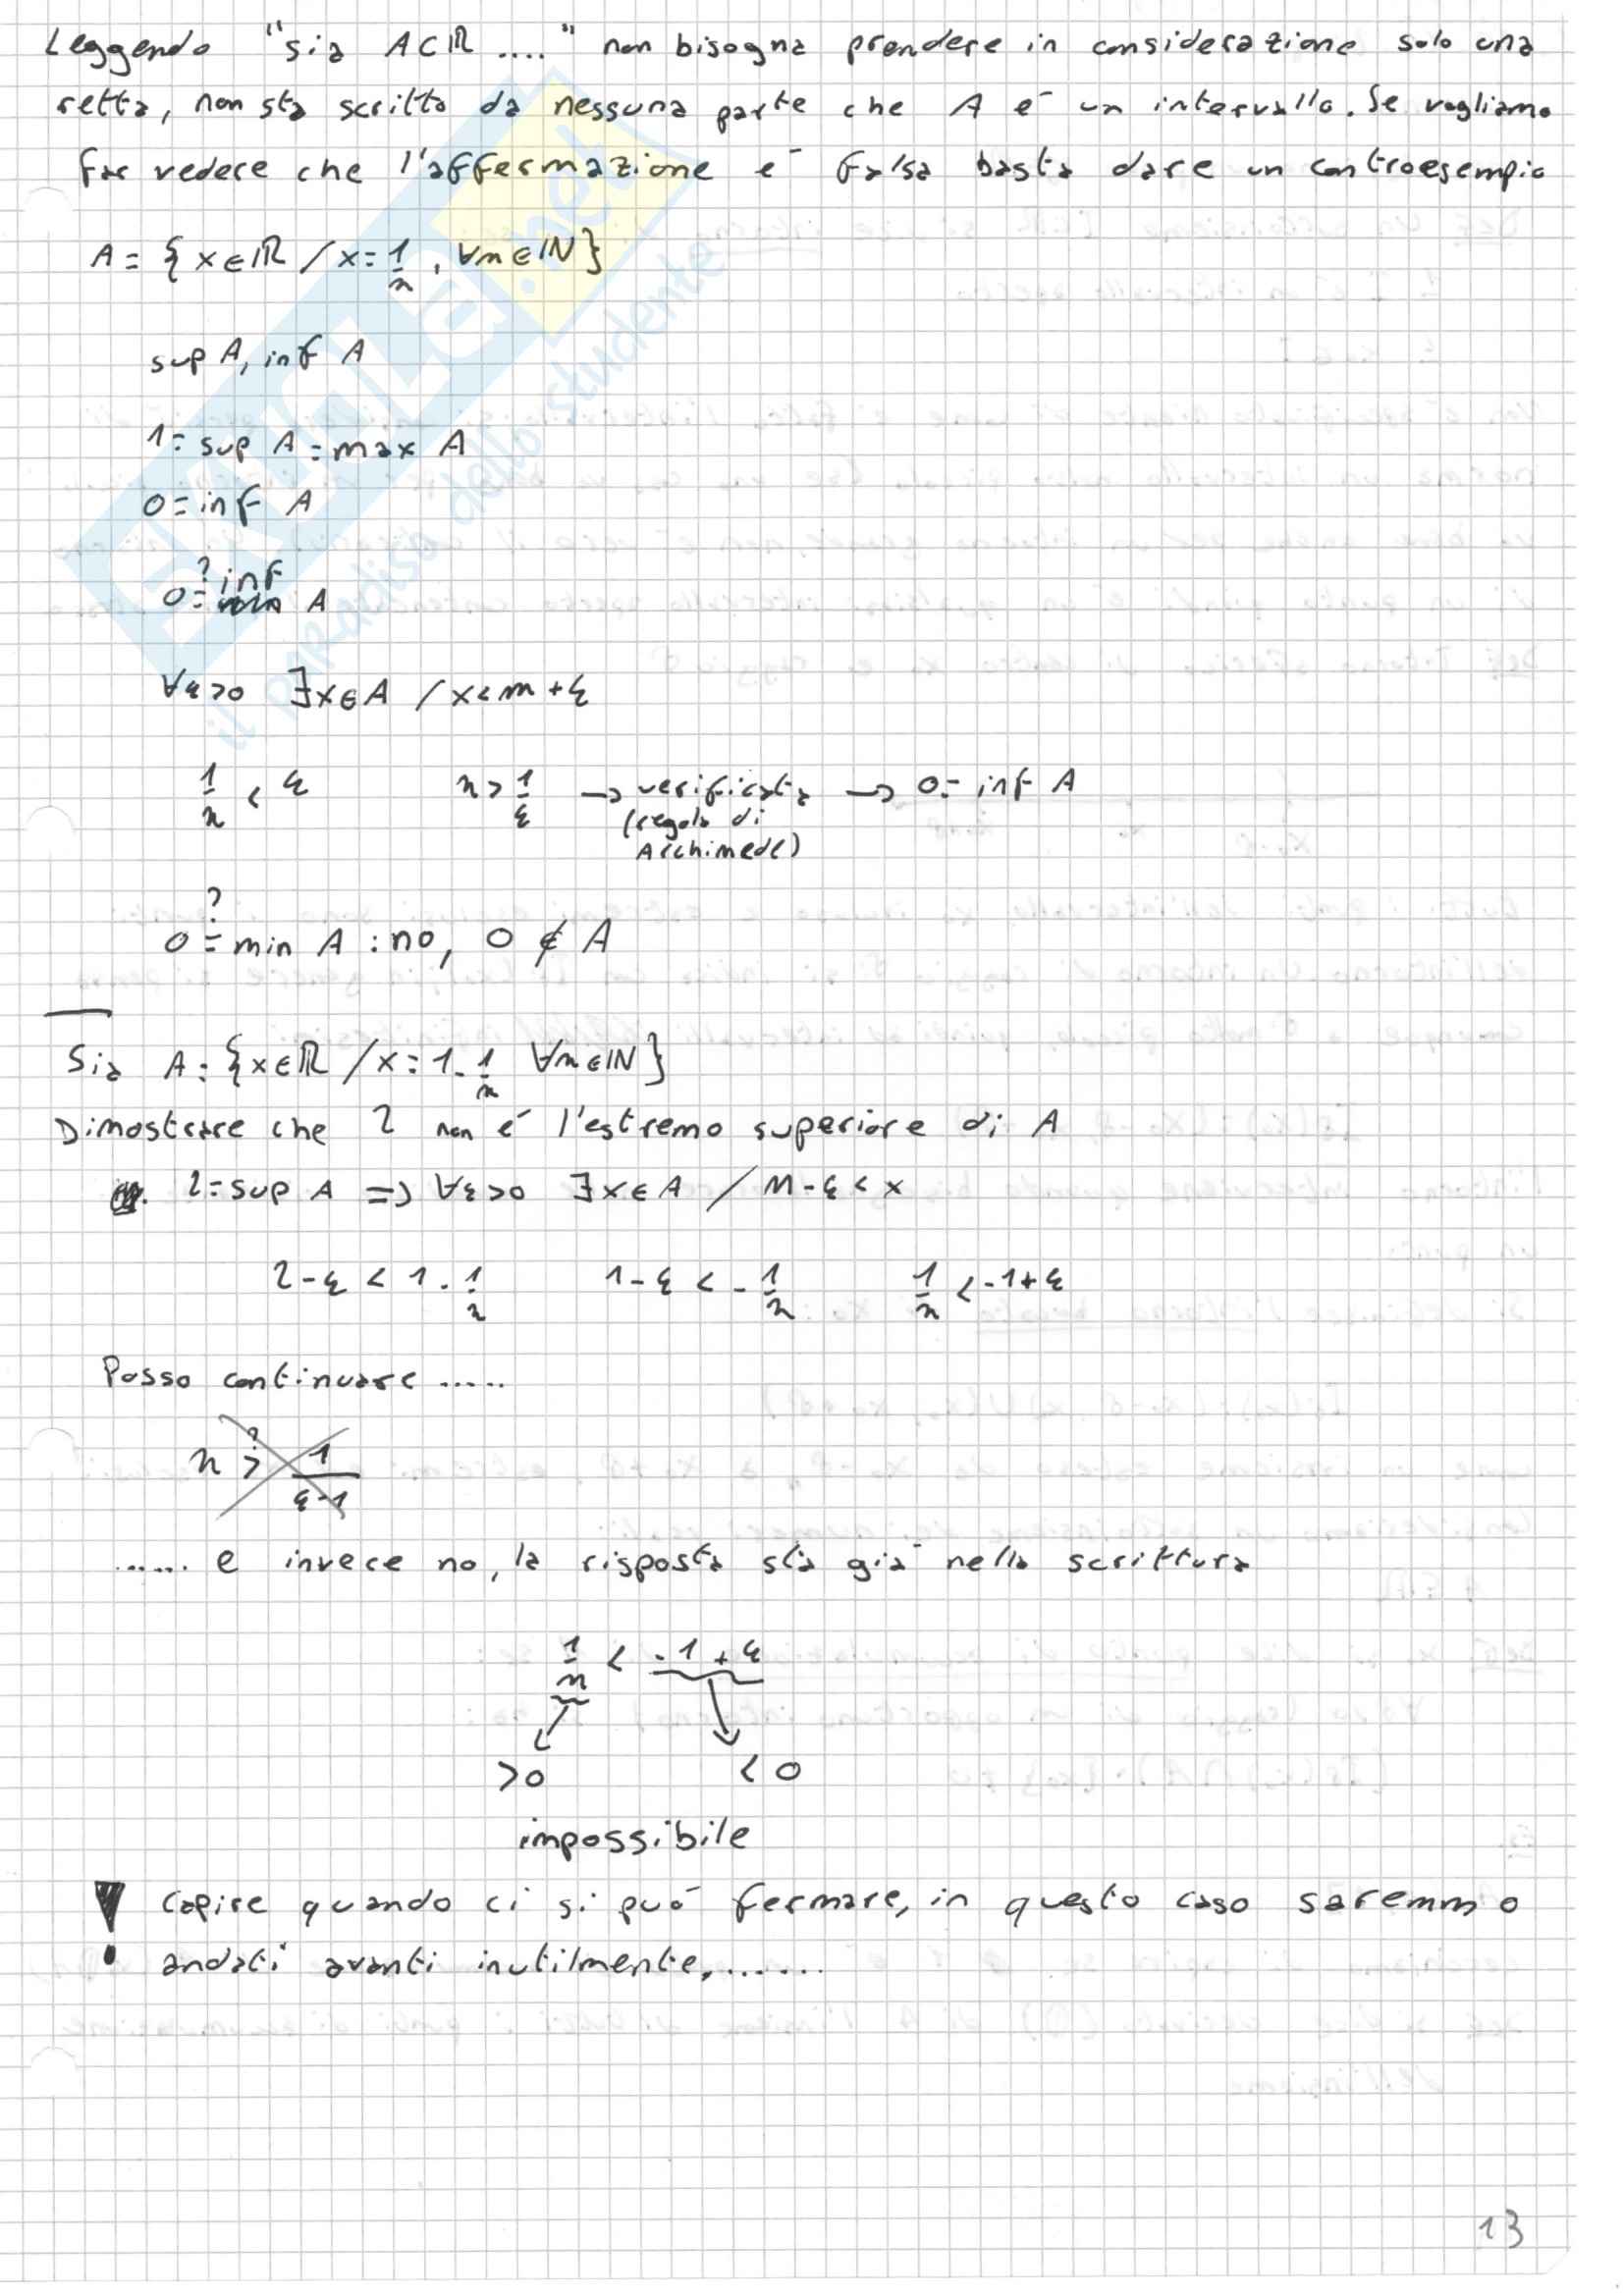 Leggendo "sia A⊂ℝ ...." non bisogna prendere in considerazione solo una
retta, non sta scritto da nessuna parte che A é un intervallo. Se vogliamo
far vedere che l'affermazione é falsa basta dare un controesempio
A = { x∈ℝ / x = 1/n , ∀n∈ℕ }
sup A, inf A
1 = sup A = max A
0 = inf A
0 =? inf A
∀ε>0 ∃x∈A / x < m + ε
1/n < ε n > 1/ε → verificata → 0 = inf A
(regola di
Archimede)
?
0 = min A : no, 0 ∉ A
Sia A = { x∈ℝ / x = 1 - 1/n ∀n∈ℕ }
Dimostrare che 2 non é l'estremo superiore di A
2 = sup A => ∀ε>0 ∃x∈A / M - ε < x
2 - ε < 1 - 1/n 1 - ε < - 1/n 1/n < -1 + ε
Posso continuare .....
n >? 1/(ε-1)
...... e invece no, la risposta sta giá nella scrittura
1/n < -1 + ε
>0 <0
impossibile
! Capire quando ci si puó fermare, in questo caso saremmo
andati avanti inutilmente. .......
13
il paradiso dello studente